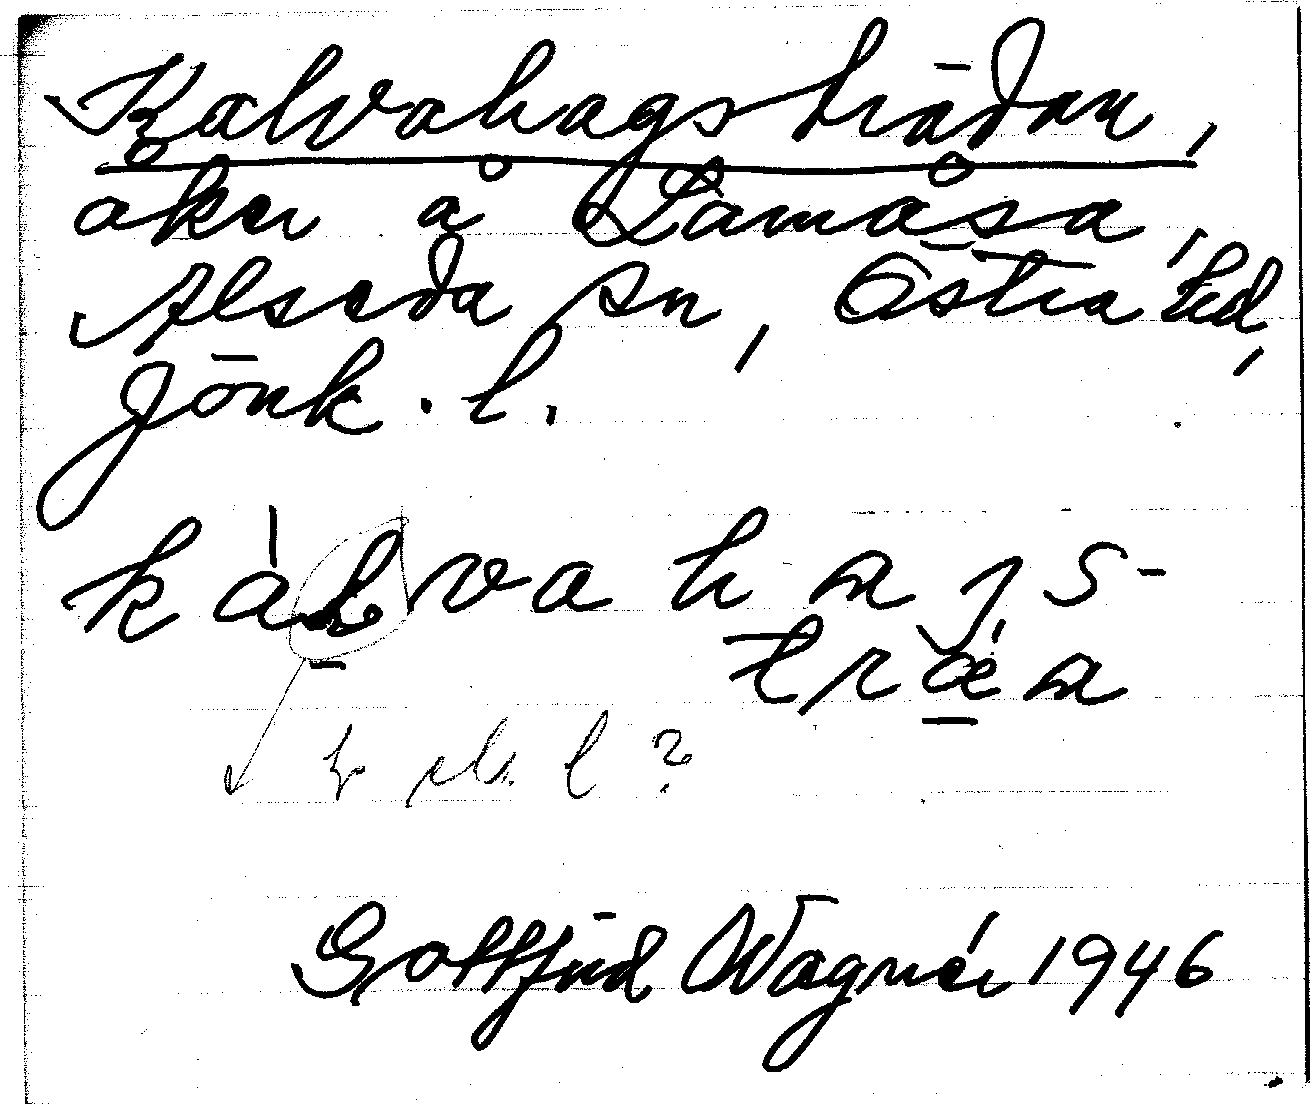 Kalvahagsträdan,
åker å Låmåsa,
Alseda sn, Östra hd,
Jönk. l.
kàlvahaʒs-
træ̀a
sk. l?
Gottfrid Wagnér 1946